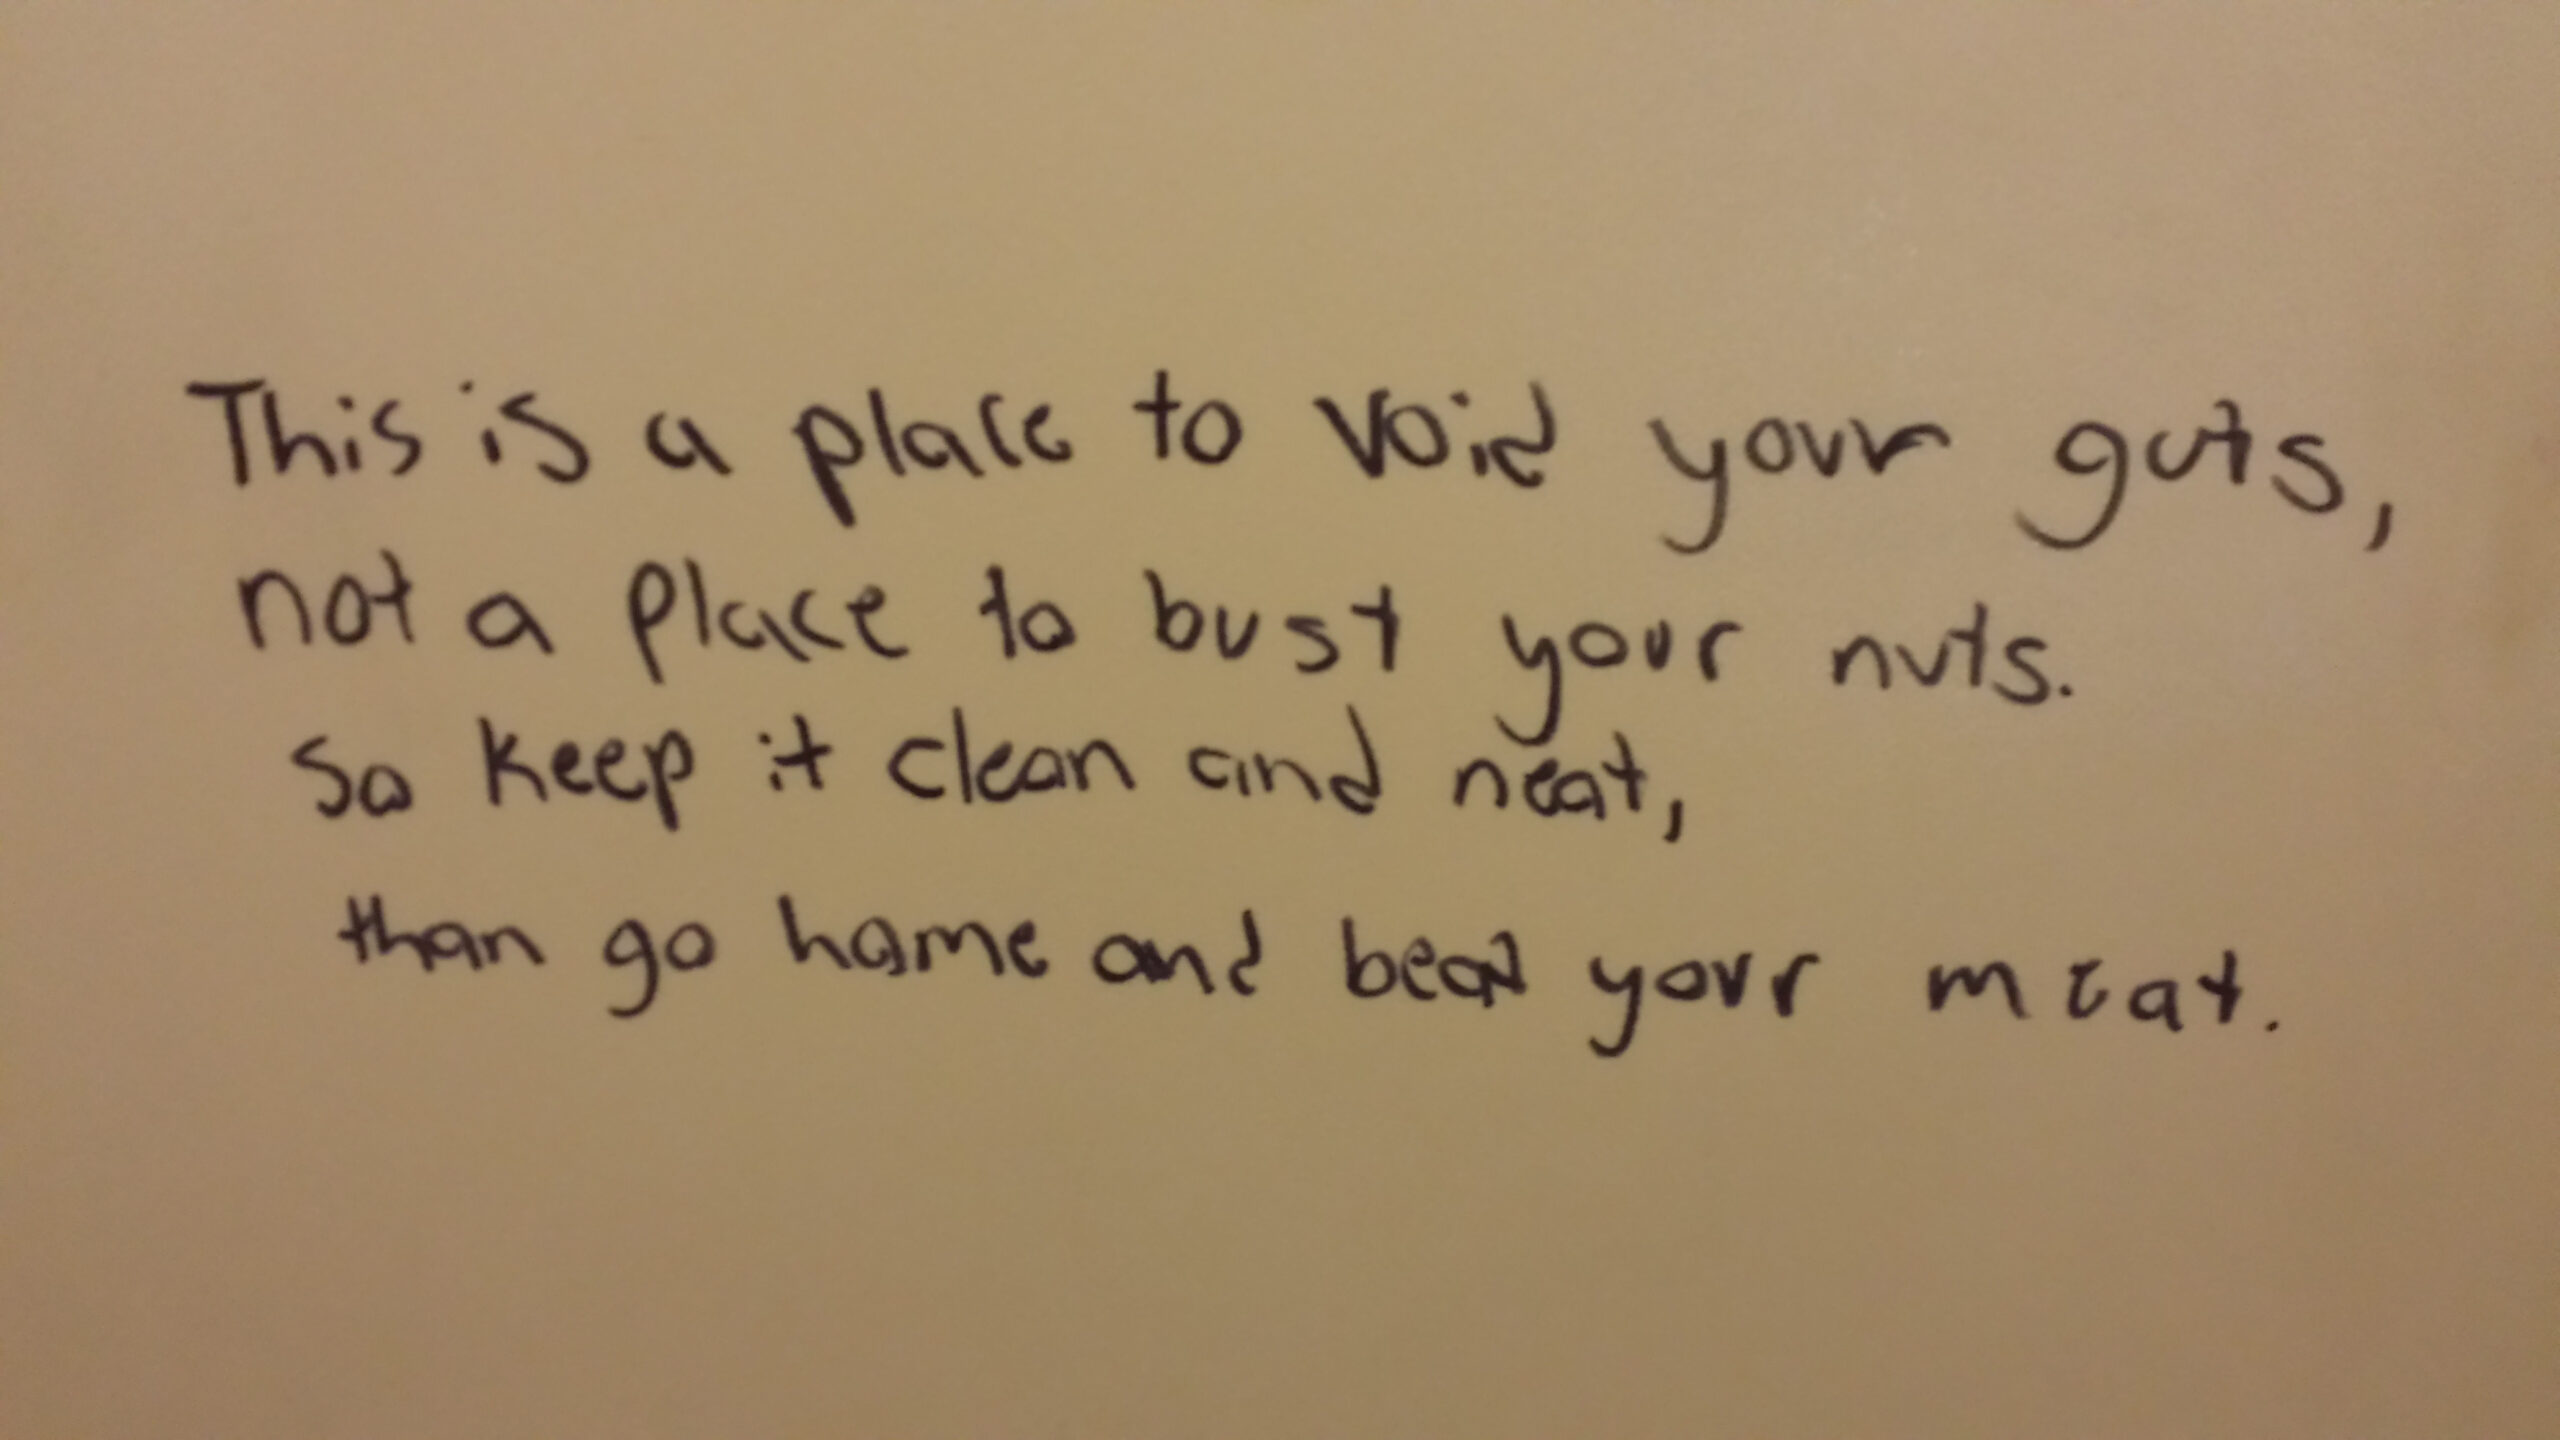 This is a place to void your guts,
not a place to bust your nuts.
So keep it clean and neat,
than go home and beat your meat.